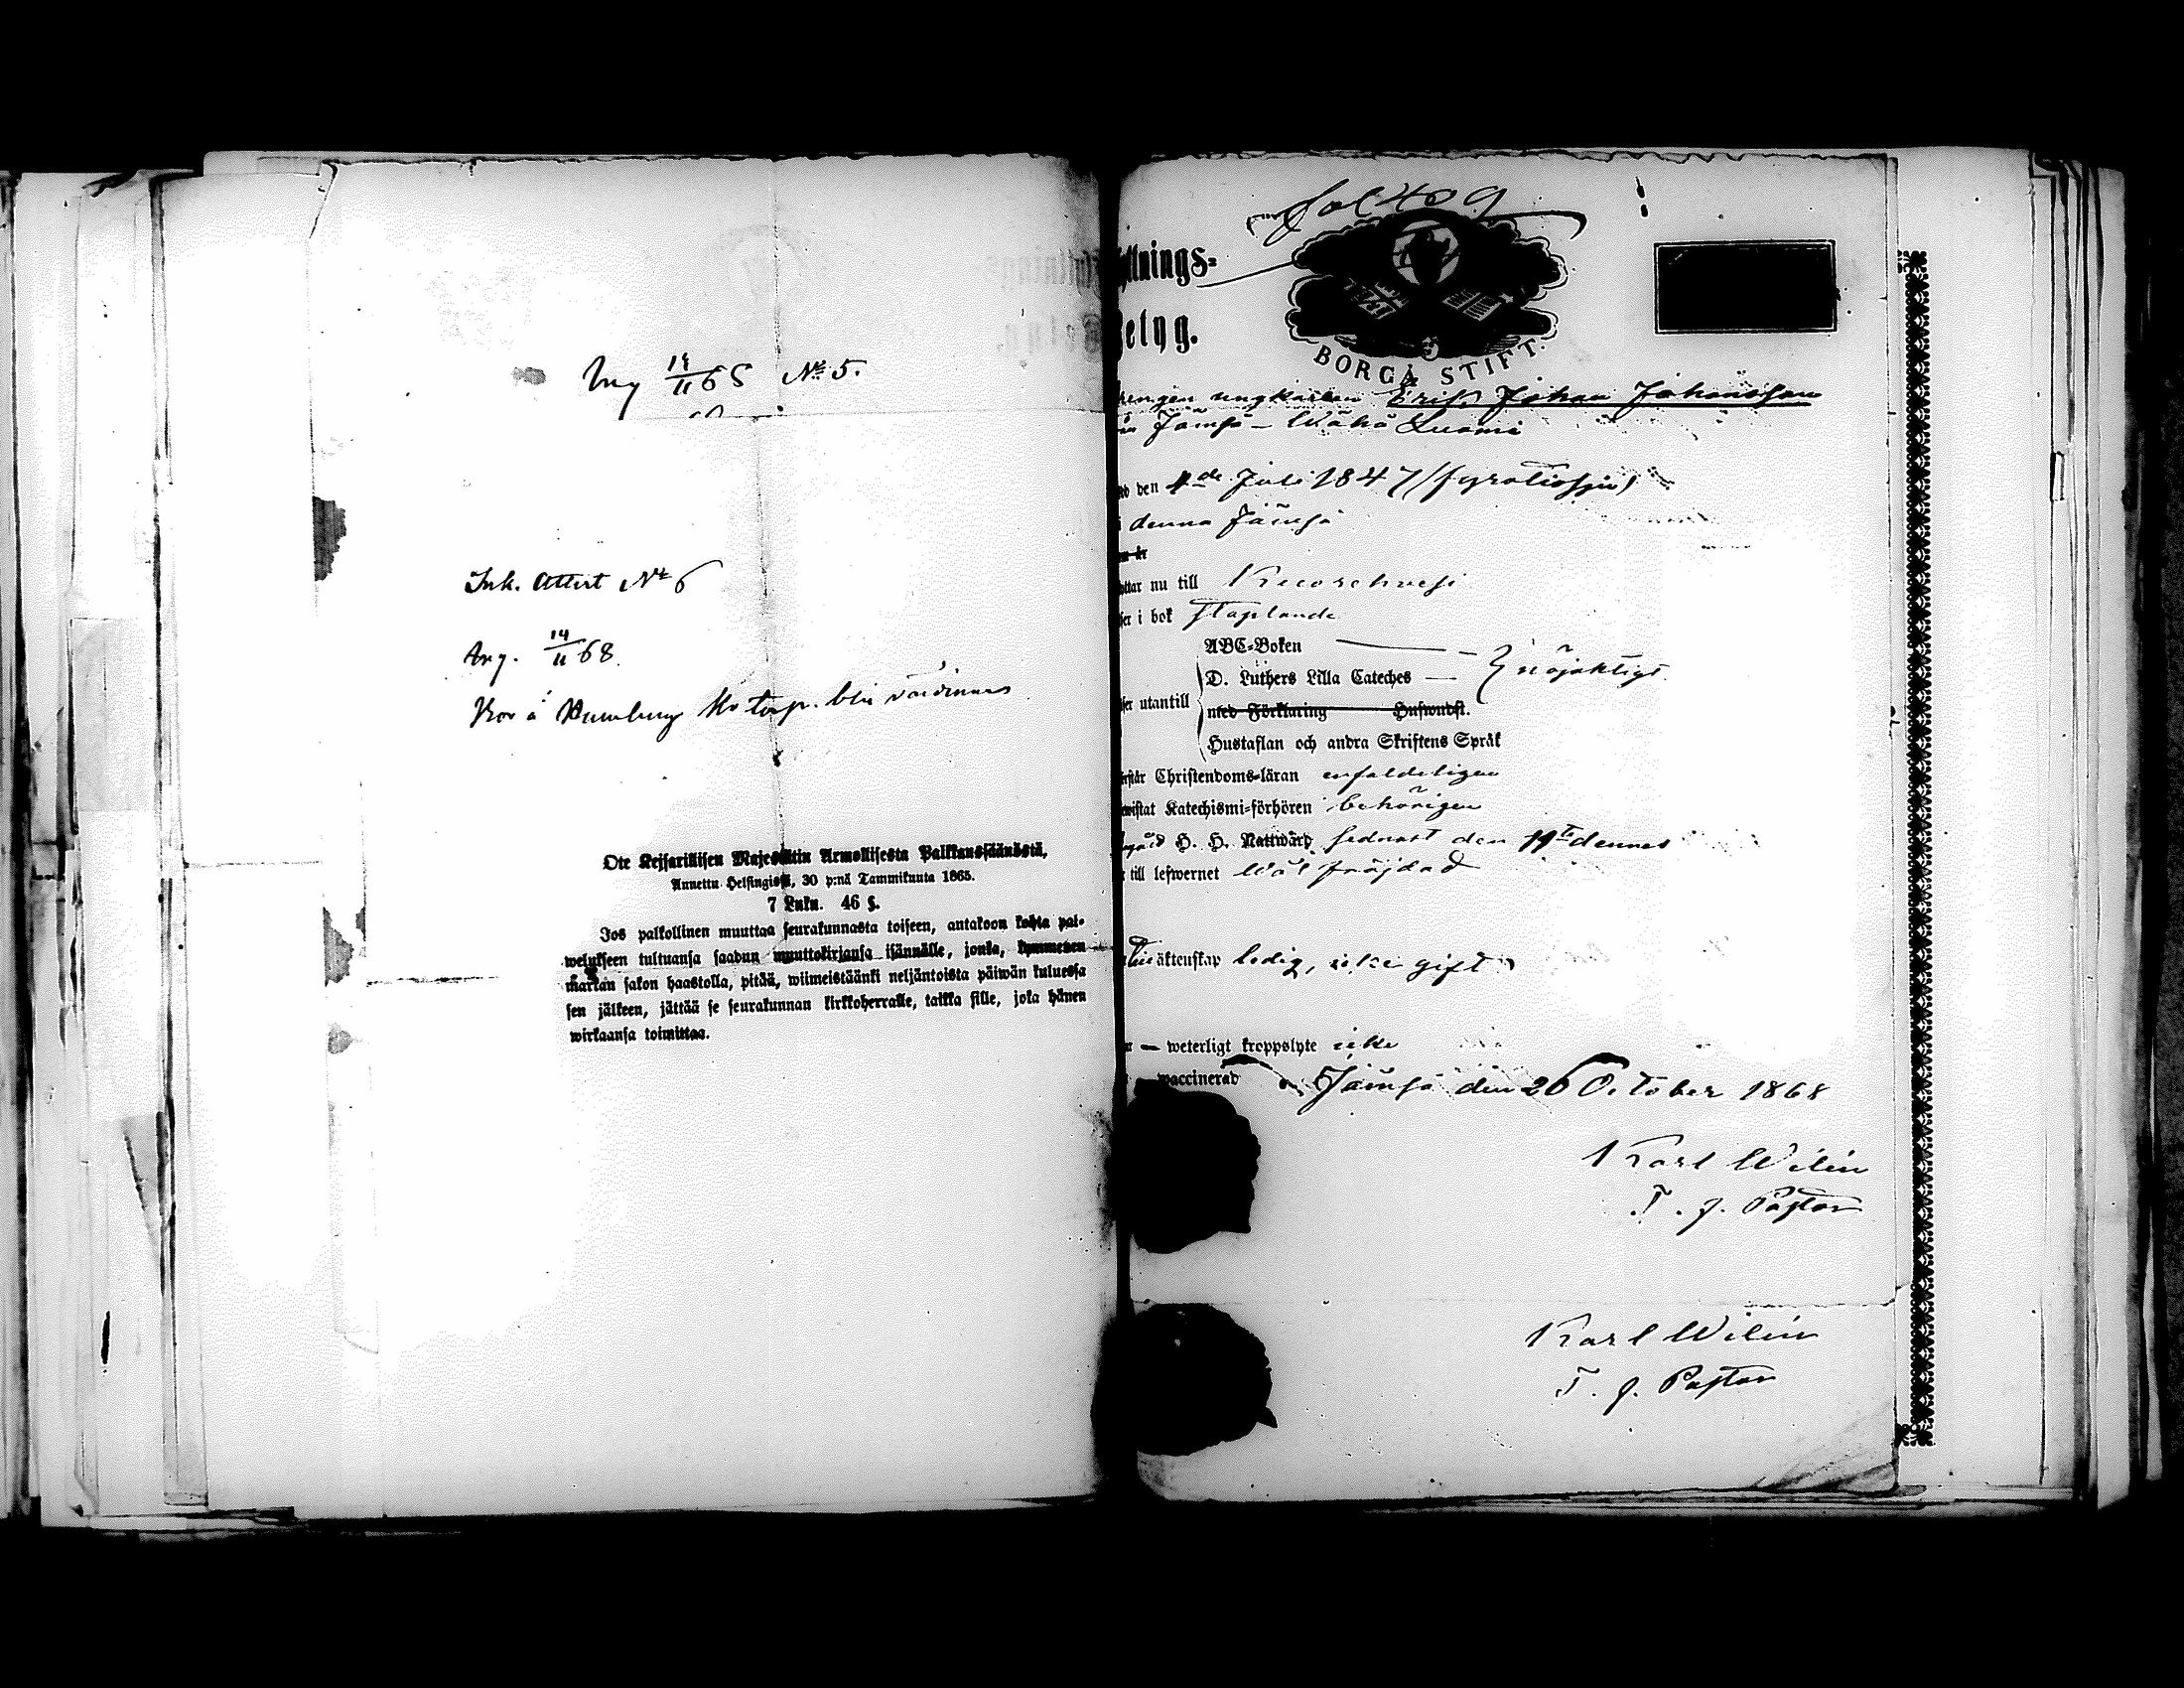 Ang 14/11 68 No 5.
Ink. Attest No 6
Ang. 14/11 68.
Bor å Humburg
Ote Kejsarillisen Majestätin Armollisesta Palkkaussäänöstä,
Annettu Helsingissä, 30 p:nä Tammikuuta 1865.
7 Luku. 46 §.
Jos palkollinen muuttaa seurakunnasta toiseen, antakoon kohta pal-
welukseen tultuansa saadun muuttokirjansa isännälle, jonka, kymmenen
markan sakon haastolla, pitää, wiimeistäänki neljäntoista päiwän kuluessa
sen jälkeen, jättää se seurakunnan kirkkoherralle, taikka sille, joka hänen
wirkaansa toimittaa.
fol 409
ttnings-
etyg.
BORGÅ STIFT.
rengen ungkarlen Erik Johan Johansson
ån Jämsä - Wähä Luomi
den 4de Juli 1847 (fyratiosju)
i denna Jämsä
år
ttar nu till Kuorehvesi
ser i bok staplande
ABC-Boken
D. Luthers Lilla Cateches } nöjaktigt
ser utantill
med Förklaring Huswudst.
Hustaflan och andra Skriftens Språk
rstår Christendoms-läran enfaldeligen
ewistat Katechismi-förhören behörigen
gåd H. H. Nattward sednast den 11te dennes
r till lefwernet Wäl fräjdad
äktenskap ledig, icke gift
— weterligt kroppslyte icke
waccinerad
Jämsä den 26 October 1868
Karl Wilén
T. f. Pastor
Karl Wilén
T. f. Pastor